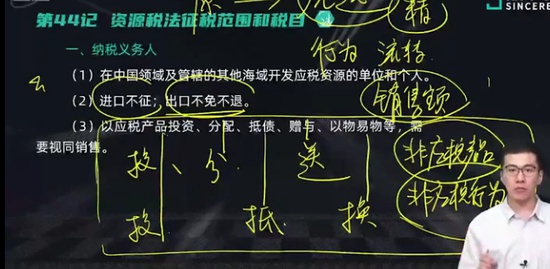 SINCERE
第44记 资源税法征税范围和税目
一、纳税义务人
行为 流转
(1)在中国领域及管辖的其他海域开发应税资源的单位和个人。
(2)进口不征;出口不免不退。
销售额
(3)以应税产品投资、分配、抵债、赠与、以物易物等,需
要视同销售。
投、分 送
投 抵 换
非应税产品
非应税行为